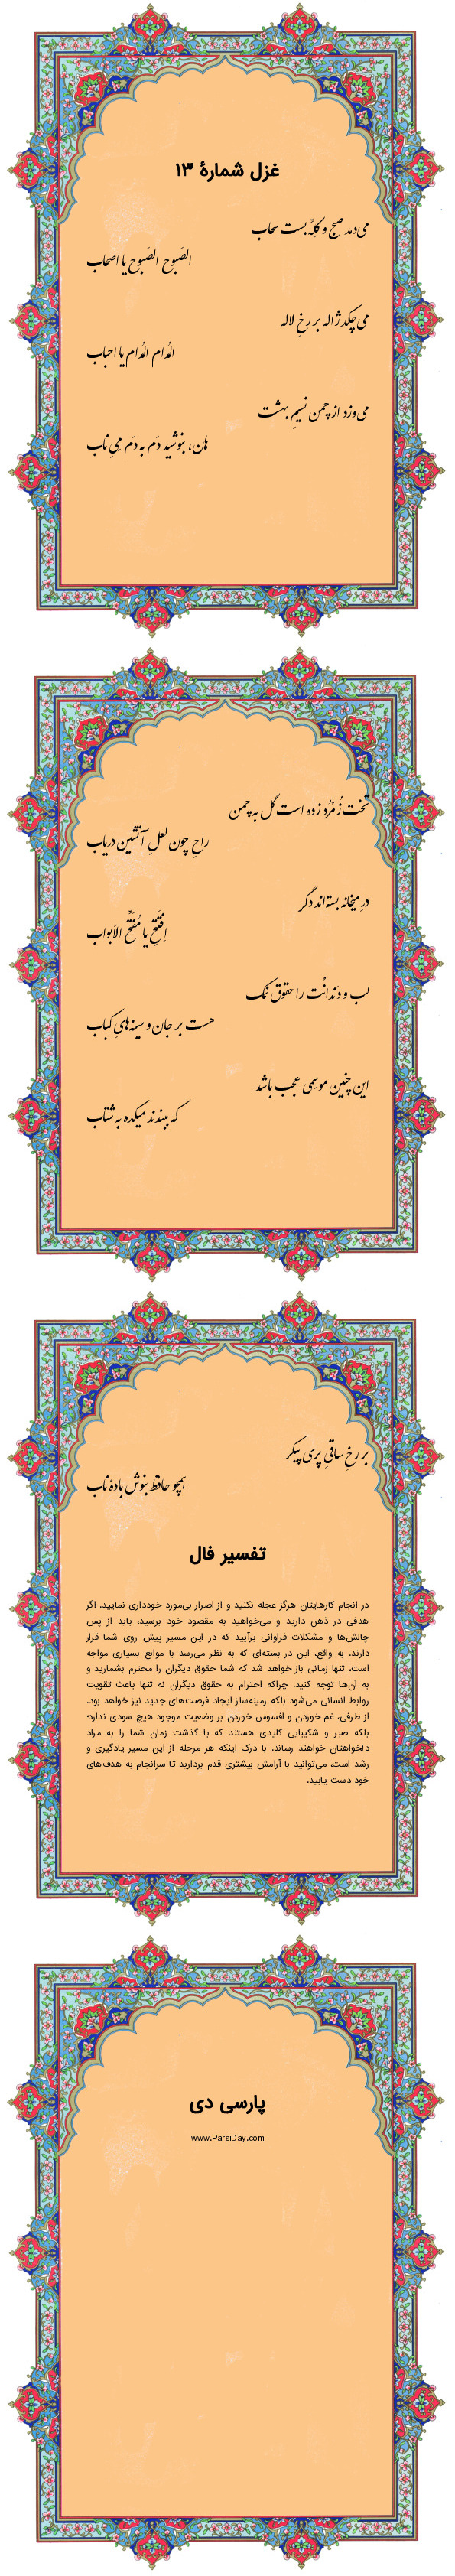 غزل شمارهٔ ۱۳
می‌دمد صبح و کِلِّه بست سحاب
الصَبوح الصَبوح یا اصحاب
می‌چکد ژاله بر رخِ لاله
المُدام المُدام یا احباب
می‌وزد از چمن نسیمِ بهشت
هان، بنوشید دَم به دَم میِ ناب
تخت زُمْرُد زده است گل به چمن
راحِ چون لعلِ آتشین دریاب
درِ میخانه بسته‌اند دگر
اِفتَتِح یا مُفَتِّح الاَبواب
لب و دندانْت را حقوق نمک
هست بر جان و سینه‌هایِ کباب
این چنین موسمی عجب باشد
که ببندند میکده به شتاب
بر رخِ ساقیِ پری پیکر
همچو حافظ بنوش بادهٔ ناب
تفسیر فال
در انجام کارهایتان هرگز عجله نکنید و از اصرار بی‌مورد خودداری نمایید. اگر
هدفی در ذهن دارید و می‌خواهید به مقصود خود برسید، باید از پس
چالش‌ها و مشکلات فراوانی برآیید که در این مسیر پیش روی شما قرار
دارند. به واقع، این در بسته‌ای که به نظر می‌رسد با موانع بسیاری مواجه
است، تنها زمانی باز خواهد شد که شما حقوق دیگران را محترم بشمارید و
به آن‌ها توجه کنید. چراکه احترام به حقوق دیگران نه تنها باعث تقویت
روابط انسانی می‌شود بلکه زمینه‌ساز ایجاد فرصت‌های جدید نیز خواهد بود.
از طرفی، غم خوردن و افسوس خوردن بر وضعیت موجود هیچ سودی ندارد؛
بلکه صبر و شکیبایی کلیدی هستند که با گذشت زمان شما را به مراد
دلخواهتان خواهند رساند. با درک اینکه هر مرحله از این مسیر یادگیری و
رشد است، می‌توانید با آرامش بیشتری قدم بردارید تا سرانجام به هدف‌های
خود دست یابید.
پارسی دی
www.ParsiDay.com